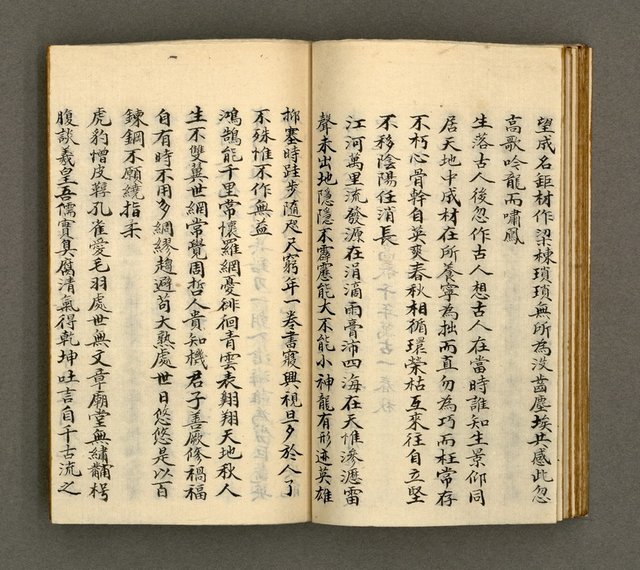 望成名鉅材作梁棟瑣瑣無所為沒齒塵埃共感此忽
高歌吟龍而嘯鳳
生落古人後忽作古人想古人在當時誰知生景仰同
居天地中成材在所養寧為拙而直勿為巧而枉常存
不朽心骨幹自英爽春秋相循環榮枯互來往自立堅
不移陰陽任消長
江河萬里流發源在涓滴雨膏沛四海在天惟滲瀝雷
聲未出地隱隱不霹靂應能大不能小神龍有形迹英雄
抑塞時跬步隨咫尺窮年一卷書寢興視旦夕於人了
不殊惟不作無益
鴻鵠能千里常懷羅網憂徘徊青雲表翱翔天地秋人
生不雙翼世網常覺周哲人貴知機君子善厥修禍福
自有時不用多綢繆趨避苟大熟處世日悠悠是以百
鍊鋼不願繞指柔
虎豹憎皮鞟孔雀愛毛羽處世無文章廟堂無繡黼枵
腹談羲皇吾儒實臭腐清氣得乾坤吐言自千古流之